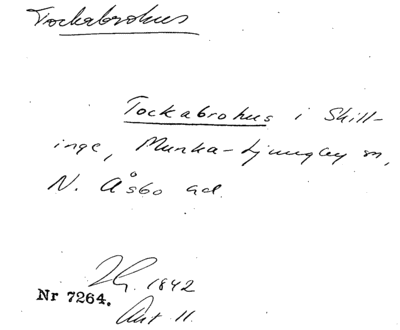 Tockabrohus
Tockabrohus i Skill-
inge, Munka-Ljungby sn,
N. Åsbo hd.
1842
Nr 7264.
Akt 11.